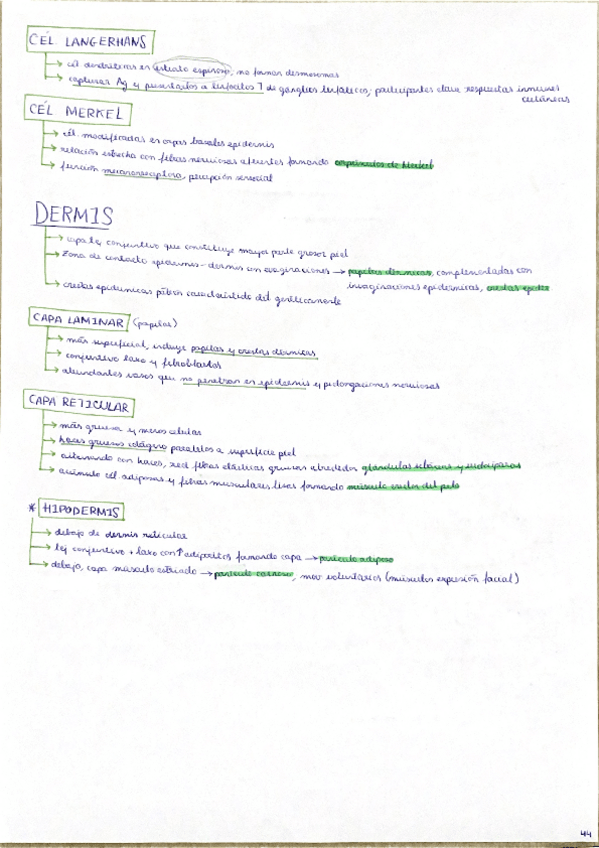 CÉL LANGERHANS
→ cél dendríticas en estrato espinoso, no forman desmosomas
→ capturar Ag y presentarlos a linfocitos T de ganglios linfáticos, participantes clave respuestas inmunes
cutáneas
CÉL MERKEL
→ cél. modificadas en capas basales epidermis
→ relación estrecha con fibras nerviosas aferentes formando corpúsculos de Merkel
→ función mecanorreceptora, percepción sensorial
DERMIS
→ capa tej conjuntivo que constituye mayor parte grosor piel
→ Zona de contacto epidermis-dermis con evaginaciones → papilas dérmicas, complementadas con
invaginaciones epidérmicas, crestas epider
→ crestas epidérmicas patrón característico det genéticamente
CAPA LAMINAR (papilas)
→ más superficial, incluye papilas y crestas dérmicas
→ conjuntivo laxo y fibroblastos
→ abundantes vasos que no penetran en epidermis y prolongaciones nerviosas
CAPA RETICULAR
→ más gruesa y menos celular
→ haces gruesos colágeno paralelos a superficie piel
→ alternando con haces, red fibras elásticas gruesas alrededor glándulas sebáceas y sudoríparas
→ acúmulo cél adiposas y fibras musculares lisas formando músculo erector del pelo
* HIPODERMIS
→ debajo de dermis reticular
→ tej conjuntivo + laxo con ↑ adipocitos formando capa → panículo adiposo
→ debajo, capa músculo estriado → panículo carnoso, mov voluntarios (músculos expresión facial)
44